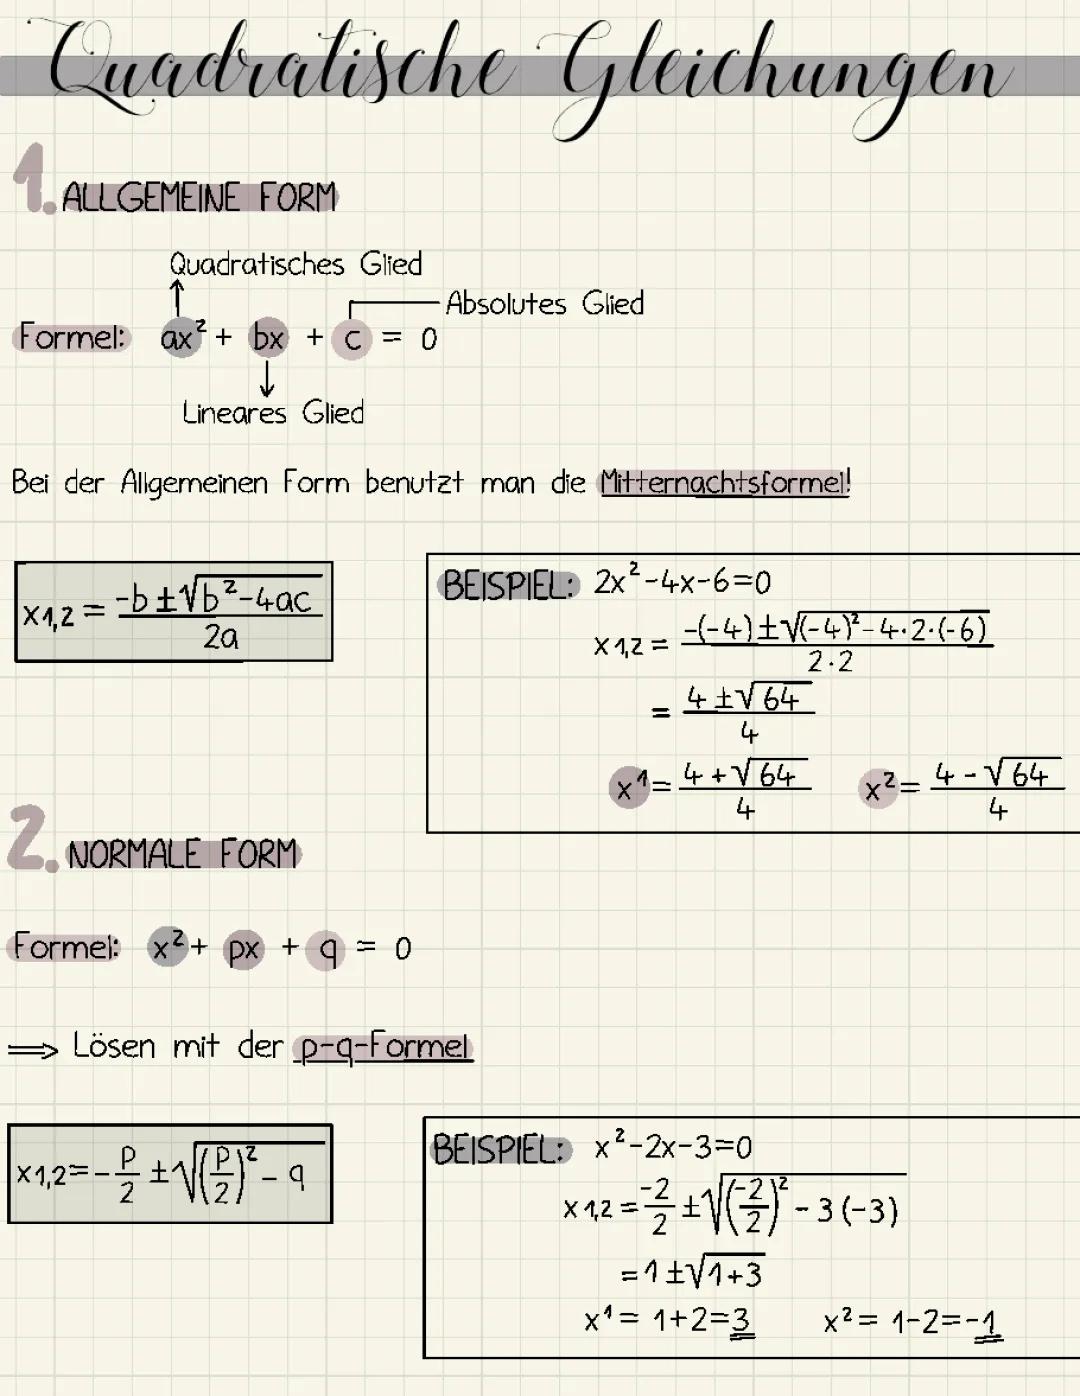 Quadratische Gleichungen
1. ALLGEMEINE FORM
Quadratisches Glied
Absolutes Glied
Formel: ax² + bx + c = 0
Lineares Glied
Bei der Allgemeinen Form benutzt man die Mitternachtsformel!
x1,2 = (-b±√(b²-4ac))/(2a)
BEISPIEL: 2x²-4x-6=0
x1,2 = (-(-4)±√((-4)²-4·2·(-6)))/(2·2)
= (4±√64)/4
x¹ = (4+√64)/4 x² = (4-√64)/4
2. NORMALE FORM
Formel: x² + px + q = 0
⟹ Lösen mit der p-q-Formel
x1,2=-p/2 ±√((p/2)²-q)
BEISPIEL: x²-2x-3=0
x1,2=-2/2 ±√((-2/2)²-3(-3))
=1±√1+3
x¹= 1+2=3 x²= 1-2=-1